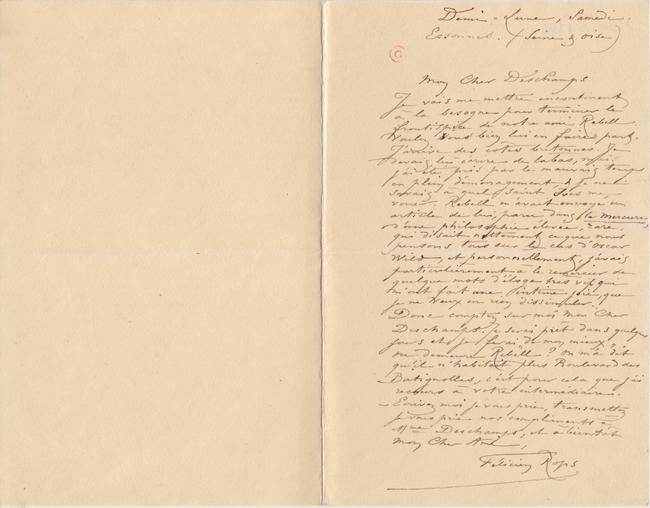 Demi-Lune, Samedi.
Essonnes. (Seine & Oise)
Mon Cher Deschamps
Je vais me mettre incontinent
à la besogne pour terminer le
frontispice de notre ami Rebell
Voulez vous bien lui en faire part.
J'arrive des côtes bretonnes. Je
devais lui écrire de labas, mais
j'ai été pris par le mauvais temps
en plein déménagement, & je ne
savais à quel saint me
vouer. Rebell m'avait envoyé un
article de lui, paru dans le Mercure,
d'une philosophie élevée, rare
qui disait nettement ce que nous
pensons tous sur le cas d'Oscar
Wild, et personnellement, j'avais
particulièrement à le remercier de
quelque mots d'éloge très vifs qui
m'ont fait une intime joie, que
je ne veux en rien dissimuler.
Donc comptez sur moi Mon Cher
Deschamps. Je serai prêt dans quelques
jours et je ferai de mon mieux.
Où demeure Rebell? On m'a dit
qu'il n'habitait plus Boulevard des
Batignolles, c'est pour cela que j'ai
recours à votre intermédiaire.
Ecrivez moi je vous prie, transmettez
je vous prie nos compliments à
Mme Deschamps, et à bientôt
Mon Cher Ami,
Félicien Rops